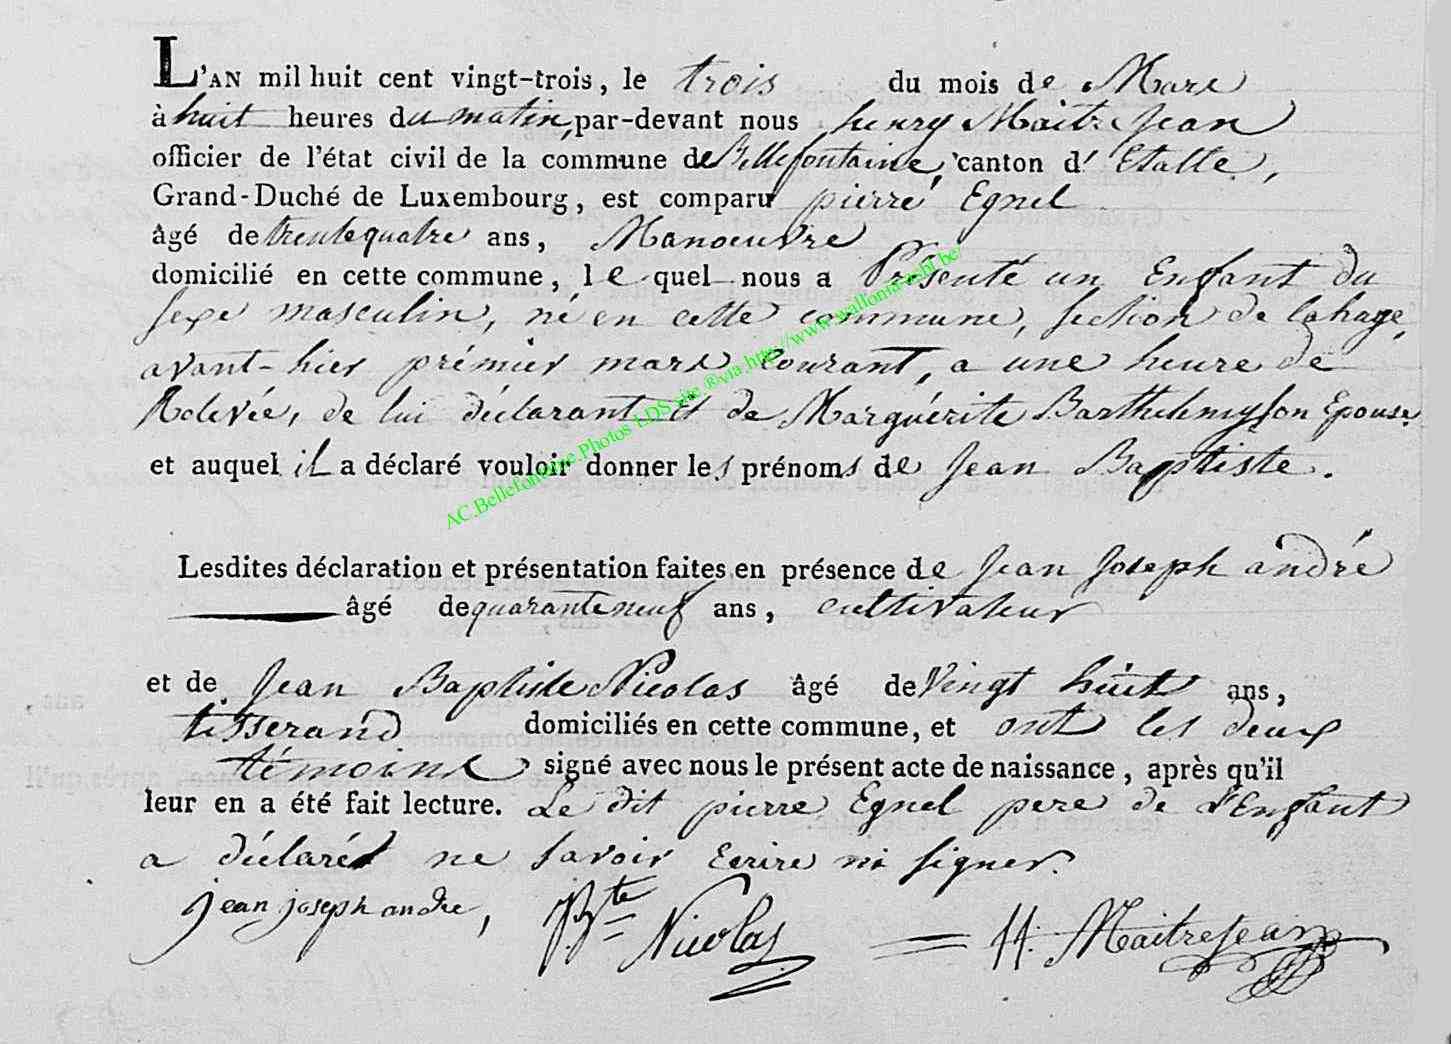 L'AN mil huit cent vingt-trois, le trois du mois de Mars
à huit heures du matin, par-devant nous henry Maitrejean
officier de l'état civil de la commune de Bellefontaine, canton d'Etalle,
Grand-Duché de Luxembourg, est comparu pierre Egnel
âgé de trente quatre ans, Manoeuvre
domicilié en cette commune, lequel nous a Présenté un Enfant du
sexe masculin, né en cette commune, section de lahage,
avant-hier prémier mars courant, a une heure de
Relevée, de lui déclarant et de Marguérite Barthelemy son Epouse
et auquel il a déclaré vouloir donner les prénoms de Jean Baptiste.
AC.Bellefontaine.Photos LDS site ®via http://www.wallonia-asbl.be/
Lesdites déclaration et présentation faites en présence de Jean Joseph andré
âgé de quarante neuf ans, cultivateur
et de Jean Baptiste Nicolas âgé de Vingt huit ans,
tisserand domiciliés en cette commune, et ont les deux
témoins signé avec nous le présent acte de naissance, après qu'il
leur en a été fait lecture. Le dit pierre Egnel pere de l'Enfant
a déclaré ne savoir Ecrire ni signer.
jean joseph andre, JBte Nicolas H. Maitrejean